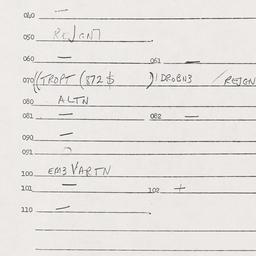 040 —
050 REJGNT
060 — 061 —
070 ((TROPT (872 $ )1DROBN3 / REJGN
080 ALTN
081 — 082 —
090 —
091
100 EM3 VARTN
101 — 102 +
110 —